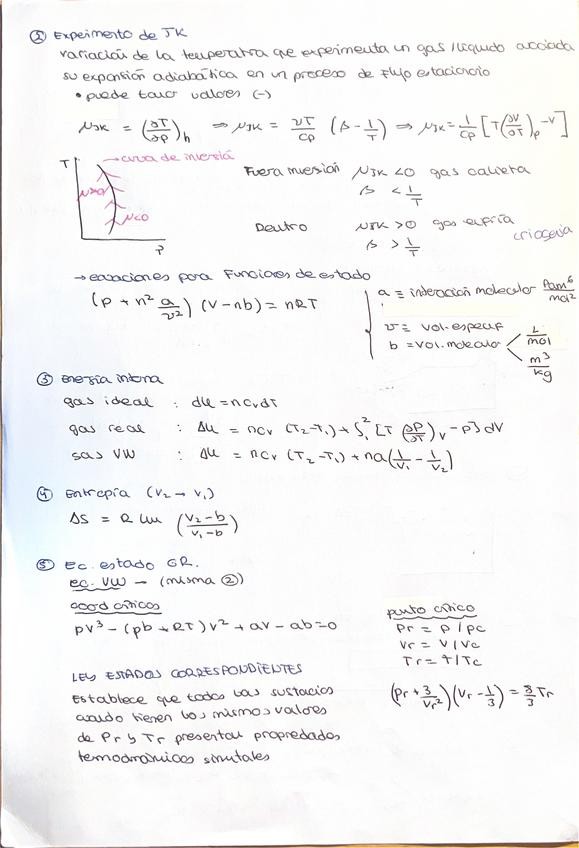 ② Experimento de JK
variación de la temperatura que experimenta un gas/líquido asociada
su expansión adiabática en un proceso de flujo estacionario
• puede tomar valores (-)
μJK = (∂T/∂P)h ⇒ μJK = vT/Cp (β - 1/T) ⇒ μJK = 1/Cp [T(∂V/∂T)p - V]
T → curva de inversión
μ>0 μ<0
P
Fuera inversión μJK < 0 gas calienta
β < 1/T
Dentro μJK > 0 gas enfría
β > 1/T criogenia
→ ecuaciones para funciones de estado
(P + n² a/v²) (V - nb) = nRT
a ≡ interacción molecular Pa m⁶/mol²
v ≡ vol. específ
b ≡ vol. molecular L/mol m³/kg
③ Energía interna
gas ideal : dU = n Cv dT
gas real : ΔU = nCv (T₂-T₁) + ∫₁² [T (∂P/∂T)v - P] dV
gas VW : ΔU = nCv (T₂-T₁) + na(1/V₁ - 1/V₂)
④ Entropía (V₂ → V₁)
ΔS = R Ln (V₂-b/V₁-b)
⑤ Ec. estado GR.
ec. VW → (misma ②)
coord críticos
PV³ - (Pb + RT)V² + aV - ab = 0
punto crítico
Pr = P/Pc
Vr = V/Vc
Tr = T/Tc
(Pr + 3/Vr²)(Vr - 1/3) = 8/3 Tr
LEY ESTADOS CORRESPONDIENTES
Establece que todas las sustacias
cuando tienen los mismos valores
de Pr y Tr presentan propiedades
termodinámicas similares